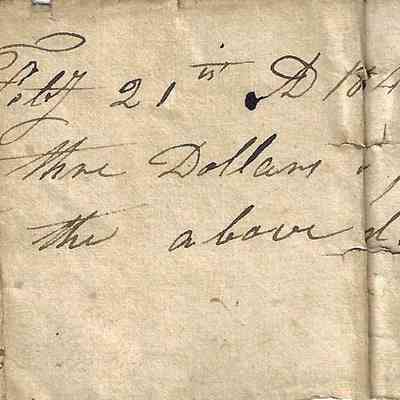 Feby 21st AD 184
three Dollars
the above